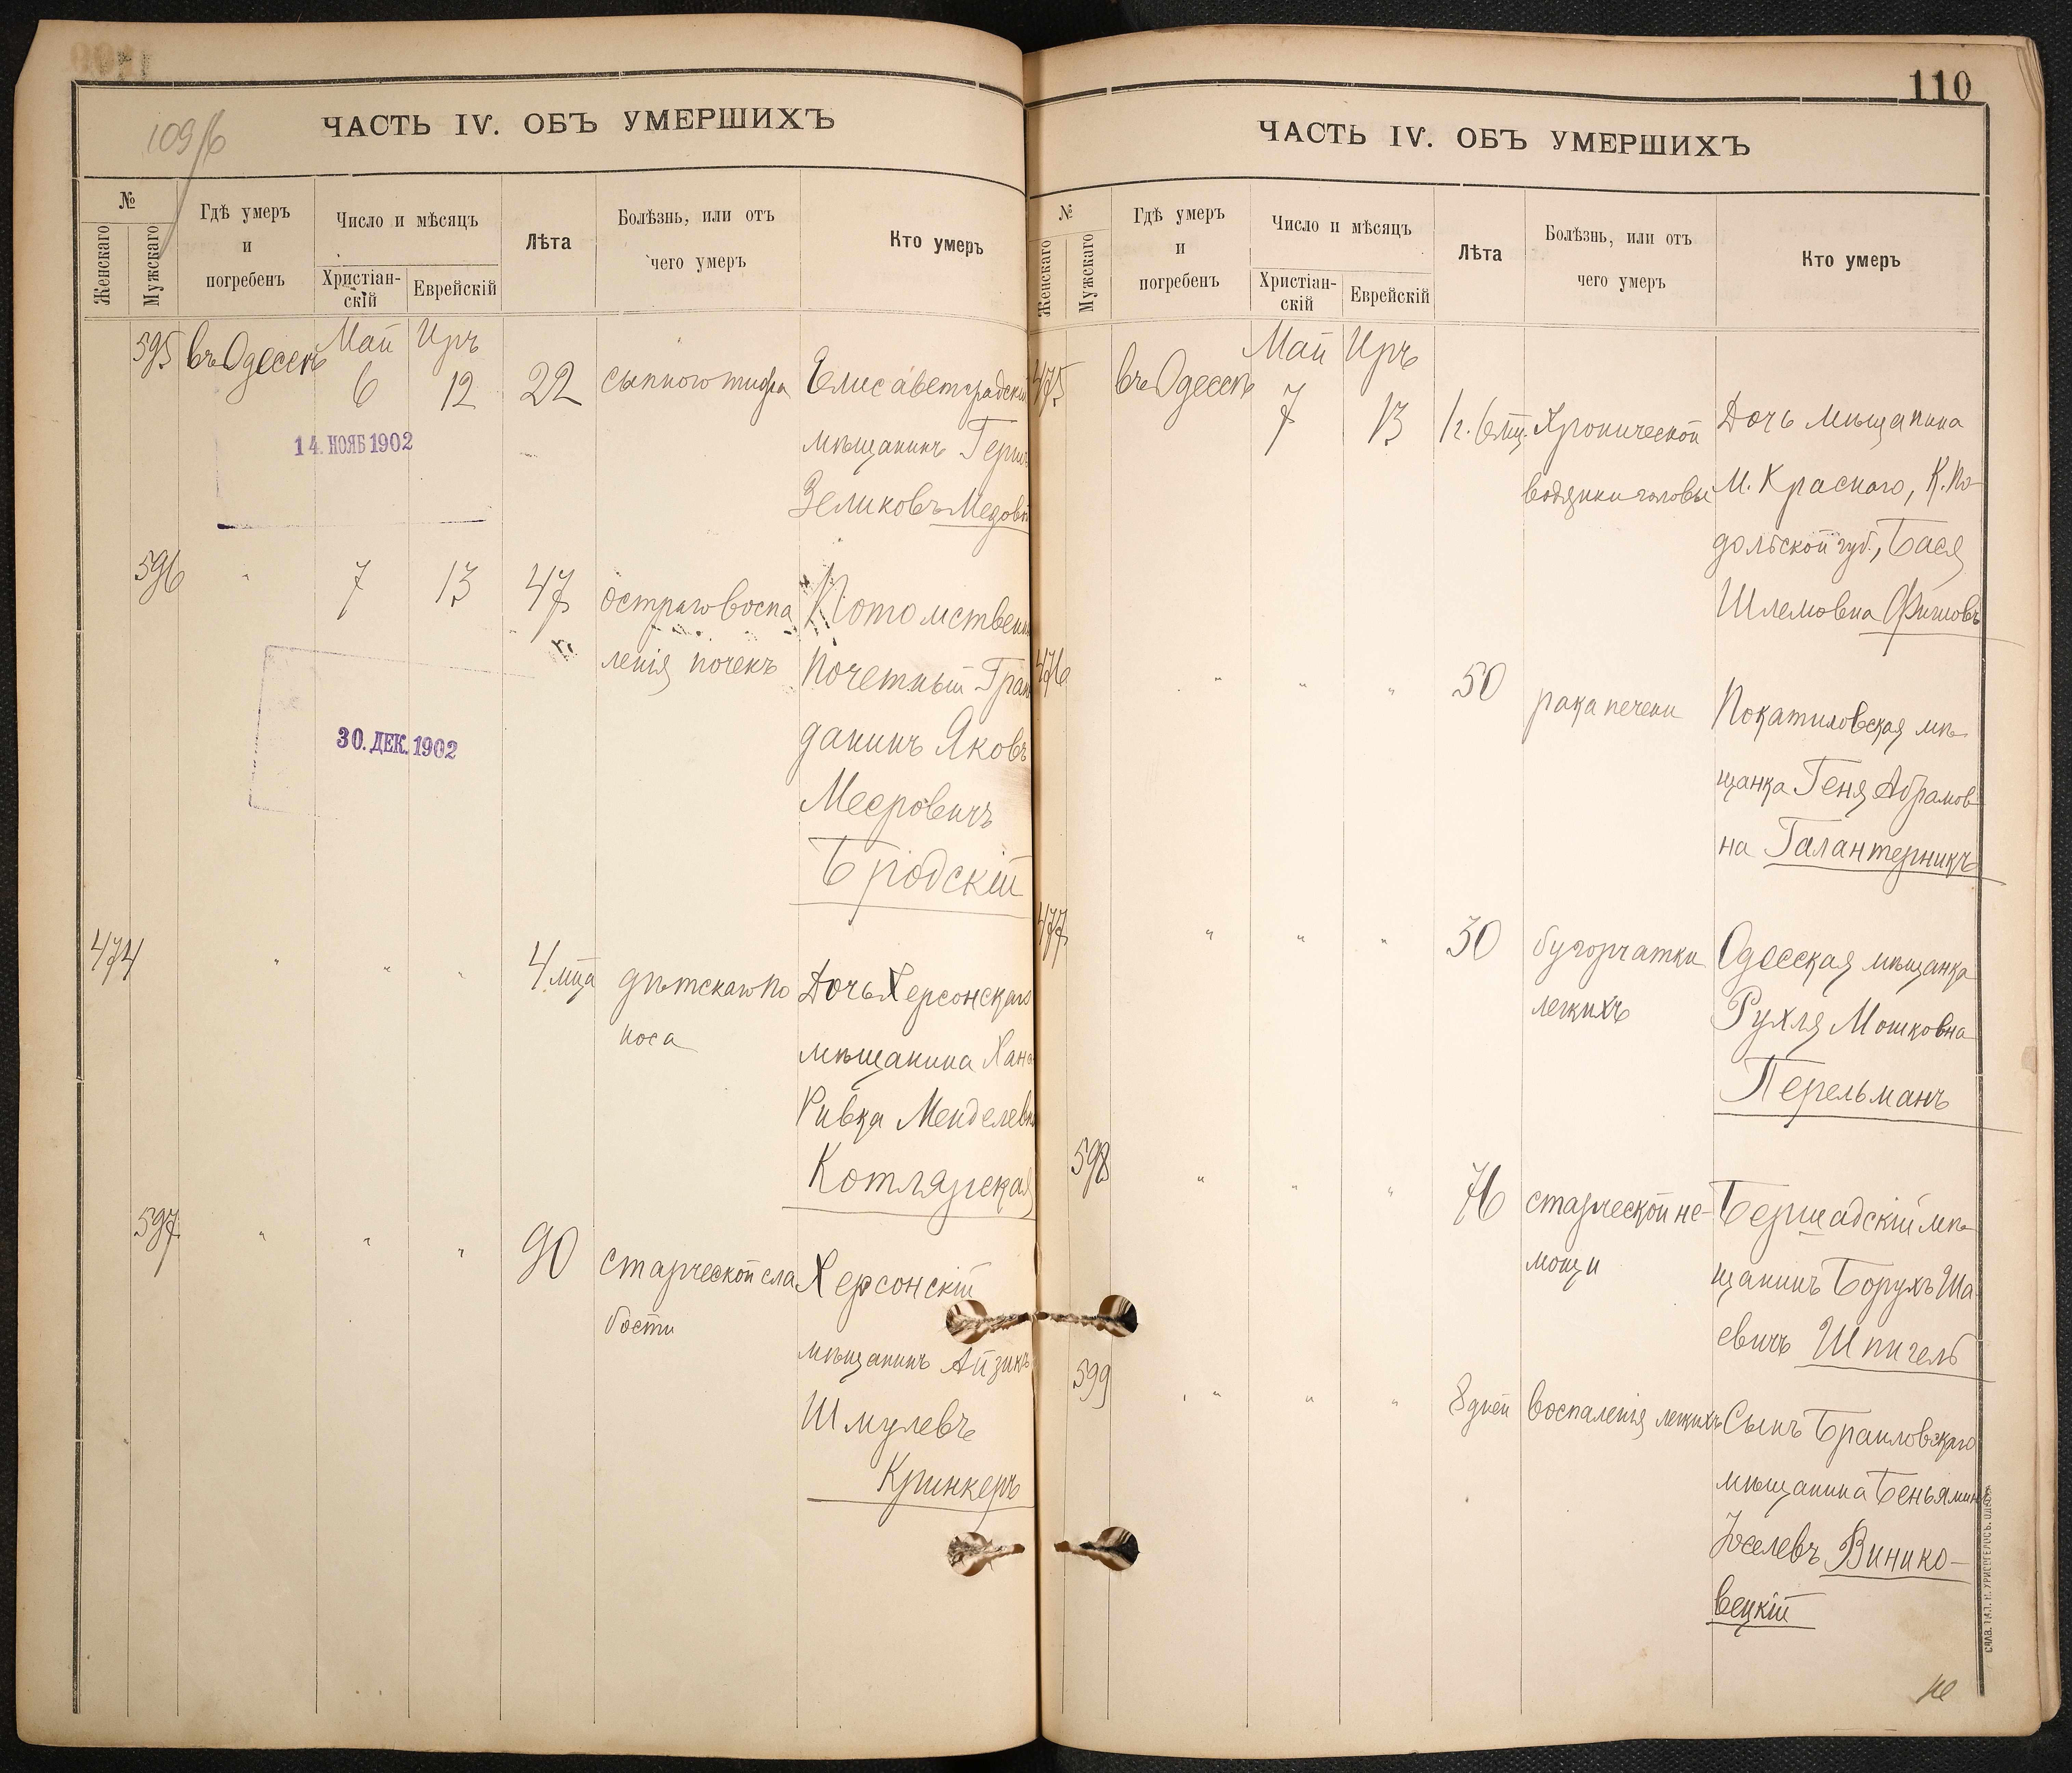 109/б
ЧАСТЬ IV. ОБЪ УМЕРШИХЪ
№
Женскаго
Мужскаго
Гдѣ умеръ
и
погребенъ
Число и мѣсяцъ
Христіан-
скій
Еврейскій
Лѣта
Болѣзнь, или отъ
чего умеръ
Кто умеръ
595 въ Одессѣ Май 6 Иръ 12 22 сыпного тифа Елисаветградскій
мѣщанинъ Герш
Зеликовъ Медов
14. НОЯБ 1902
596 " 7 13 47 остраго воспа Потомствен
ленія почекъ Почетный Граж
данинъ Яковъ
Мееровичъ
Бродскій
30. ДЕК. 1902
474 " " " 4 мца дѣтскаго по Дочь Херсонскаго
носа мѣщанина Хана
Ривка Менделевна
Котлярская
597 " " " 90 старческой сла Херсонскій
бости мѣщанинъ Айзикъ
Шмулевъ
Кринкеръ
110
ЧАСТЬ IV. ОБЪ УМЕРШИХЪ
№
Женскаго
Мужскаго
Гдѣ умеръ
и
погребенъ
Число и мѣсяцъ
Христіан-
скій
Еврейскій
Лѣта
Болѣзнь, или отъ
чего умеръ
Кто умеръ
475 въ Одессѣ Май 7 Иръ 13 1 г. 6 мц. Хронической Дочь мѣщанина
водянки головы М. Краснаго, К. По-
дольской губ., Бася
Шлемовна Фишовъ
476 " " " 50 рака печени Покатиловская мѣ-
щанка Геня Абрамов-
на Галантерникъ
477 " " " 30 бугорчатки Одесская мѣщанка
легкихъ Рухля Мошковна
Перельманъ
598 " " " 76 старческой не- Бершадскій мѣ-
мощи щанинъ Борухъ Ша-
евичъ Шпигель
599 " " " 8 дней воспаленія легкихъ Сынъ Браиловскаго
мѣщанина Беньяминъ
Іоселевъ Винико-
вецкій
СЛАВ. ТИП. Н. ХРИСОГЕЛОСЪ. ОДЕССА